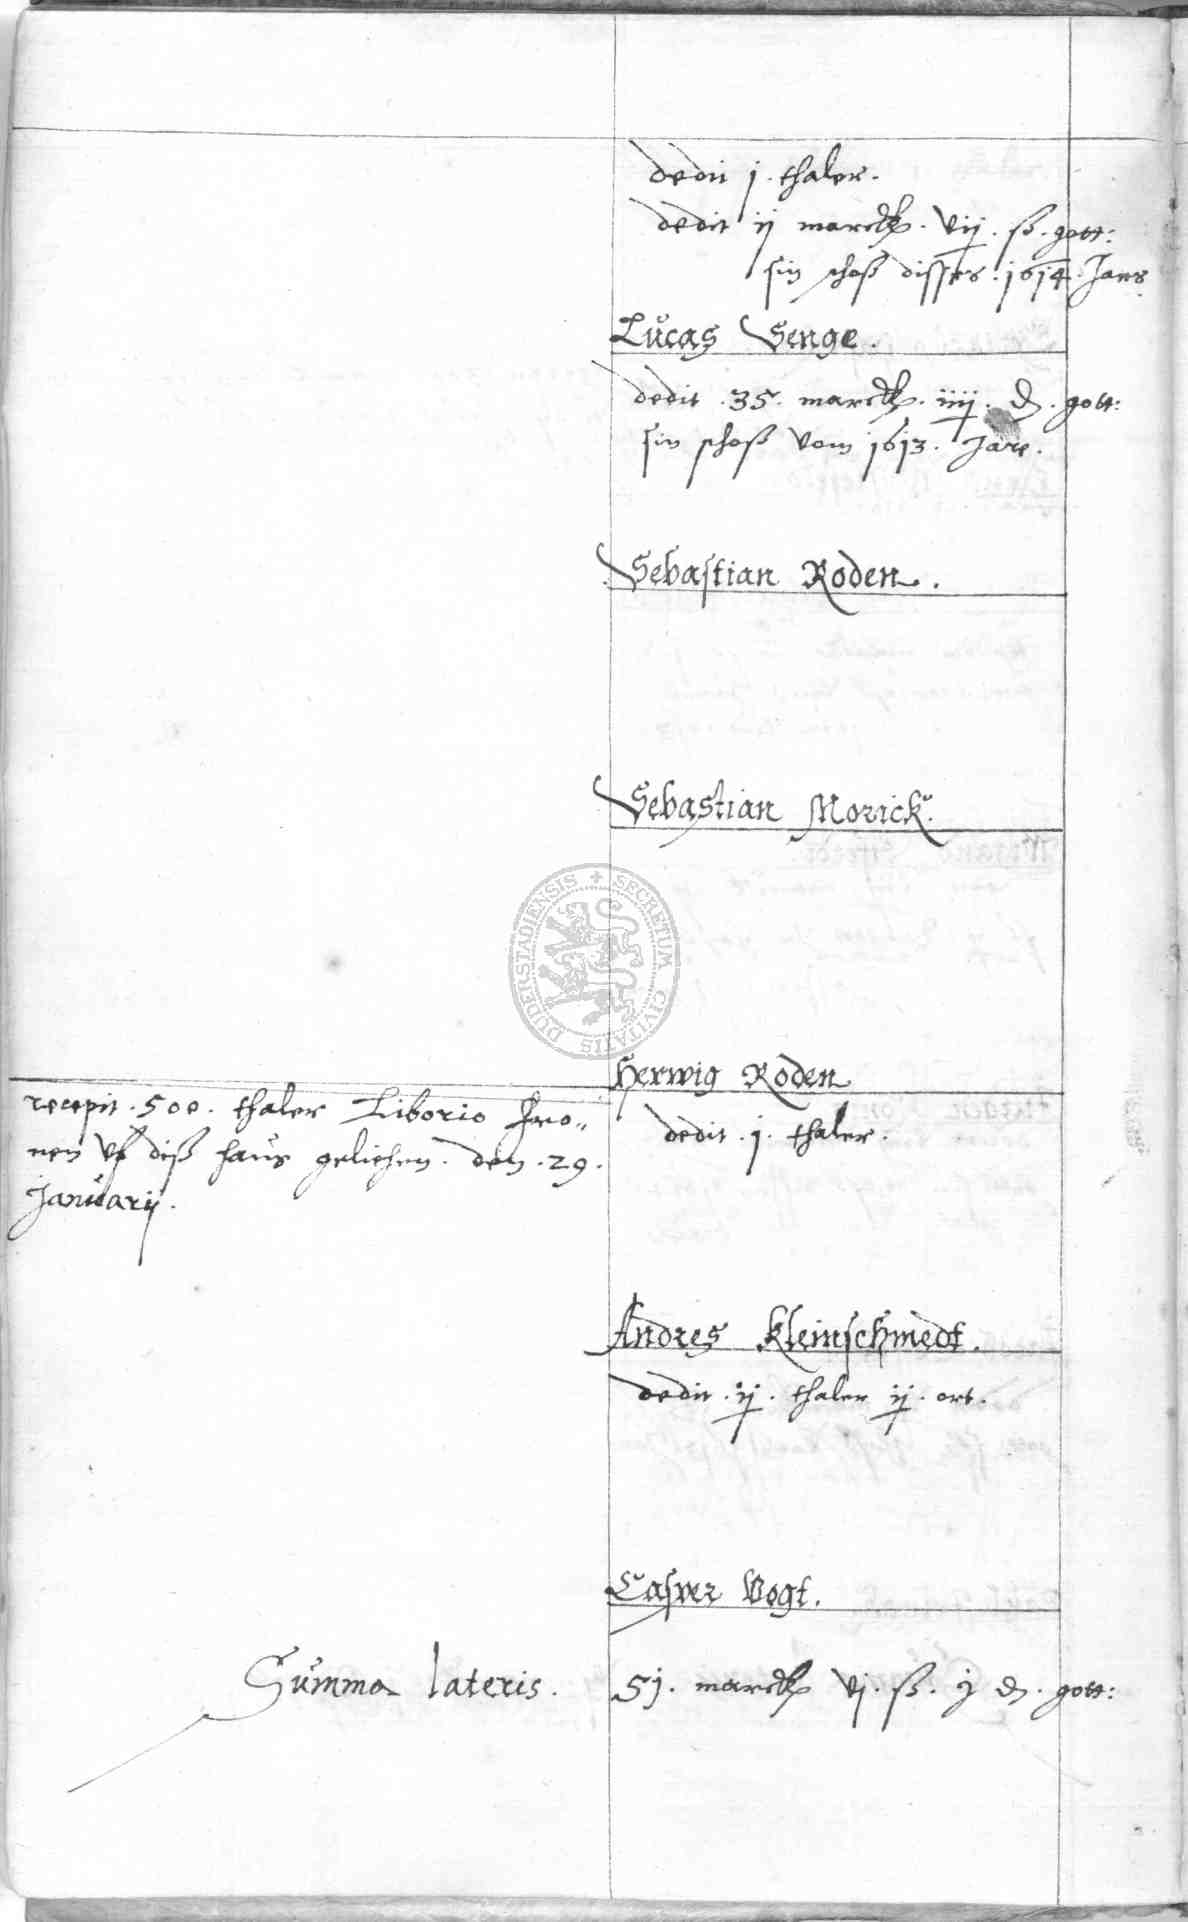 dedit j. thaler.
dedit ij marck. vij. ß. gott:
sin schoß disses. 1614. Jars.
Lucas Senge.
dedit. 35. marck. iiij. d. gott:
sin schoß vom 1613. Jare.
Sebastian Roden.
Sebastian Morick.
SECRETUM CIVITATIS DUDERSTADIENSIS
Herwig Roden
recepit. 500. thaler Liborio
nen vf diß haus geliehen. den. 29.
Januarij.
dedit. j. thaler.
Andres Kleinschmedt.
dedit. ij. thaler ij. ort.
Casper Vogt.
Summa lateris. 51. marck vj. ß. j d. gott: